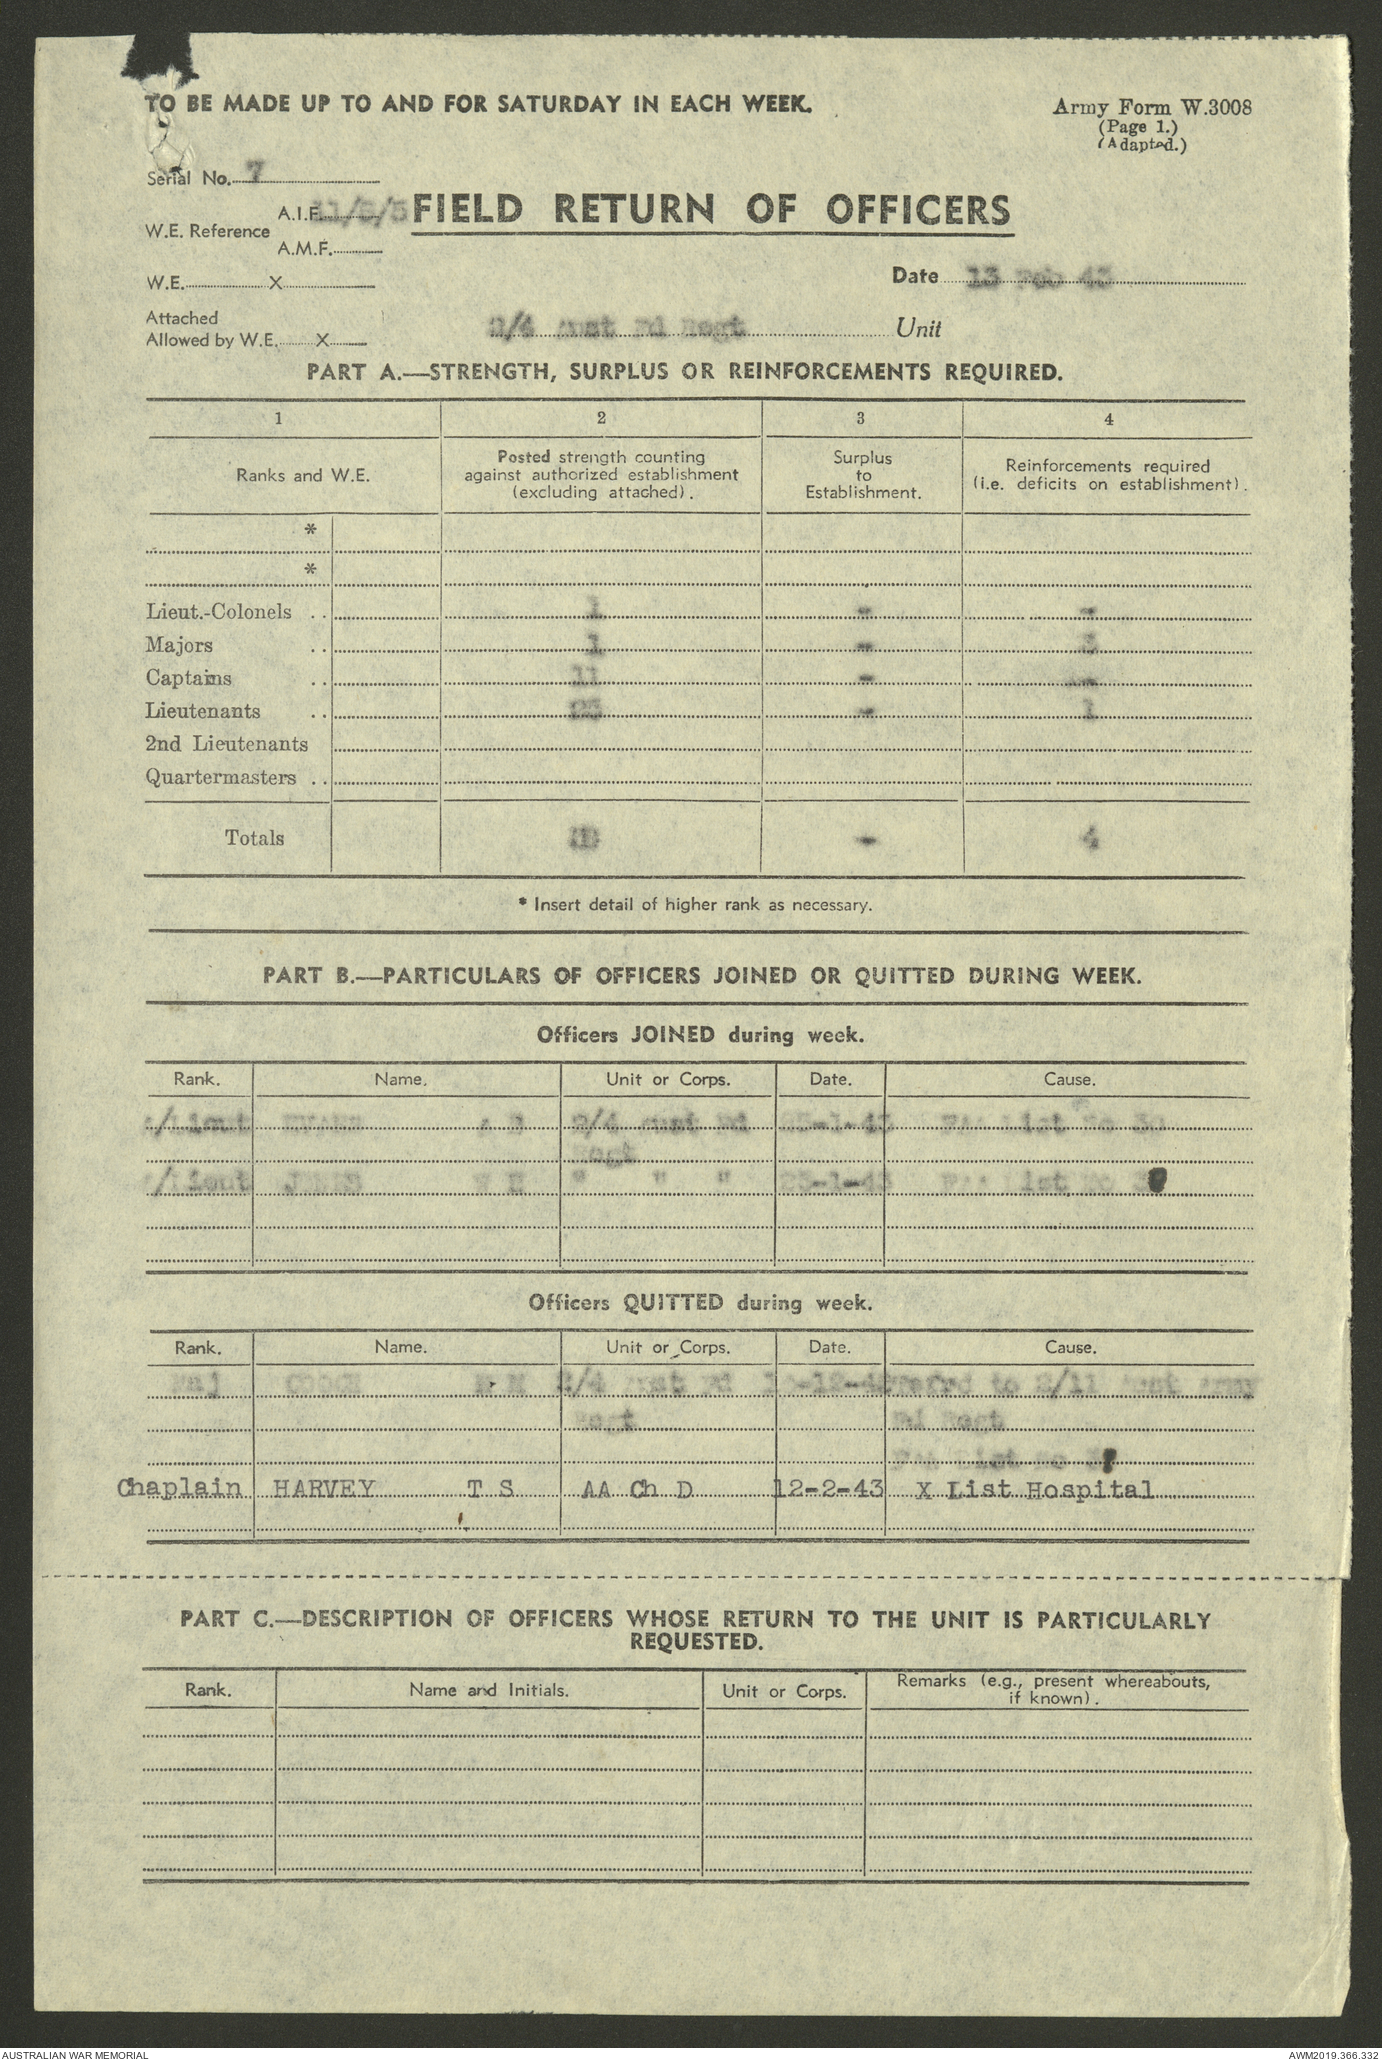 TO BE MADE UP TO AND FOR SATURDAY IN EACH WEEK.
Army Form W.3008
(Page 1.)
(Adapted.)
Serial No. 7
W.E. Reference
A.I.F.
A.M.F.
FIELD RETURN OF OFFICERS
W.E. X
Date 13 Feb 43
Attached
Allowed by W.E. X
2/4 Aust Fd Regt Unit
PART A.—STRENGTH, SURPLUS OR REINFORCEMENTS REQUIRED.
1 2 3 4
Ranks and W.E.
Posted strength counting
against authorized establishment
(excluding attached).
Surplus
to
Establishment.
Reinforcements required
(i.e. deficits on establishment).
*
*
Lieut.-Colonels .. 1 - -
Majors .. 1 - 3
Captains .. 11 - -
Lieutenants .. - 1
2nd Lieutenants
Quartermasters ..
Totals - 4
* Insert detail of higher rank as necessary.
PART B.—PARTICULARS OF OFFICERS JOINED OR QUITTED DURING WEEK.
Officers JOINED during week.
Rank. Name. Unit or Corps. Date. Cause.
/Lieut 2/4 Aust Fd 25-1-43 List No
Regt
/Lieut JONES " " " 25-1-43 List No
Officers QUITTED during week.
Rank. Name. Unit or Corps. Date. Cause.
Maj GOOCH 2/4 Aust Fd to 2/11 Aust Army
Regt Fd Regt
List No
Chaplain HARVEY T S AA Ch D 12-2-43 X List Hospital
PART C.—DESCRIPTION OF OFFICERS WHOSE RETURN TO THE UNIT IS PARTICULARLY
REQUESTED.
Rank. Name and Initials. Unit or Corps. Remarks (e.g., present whereabouts,
if known).
AUSTRALIAN WAR MEMORIAL
AWM2019.366.332